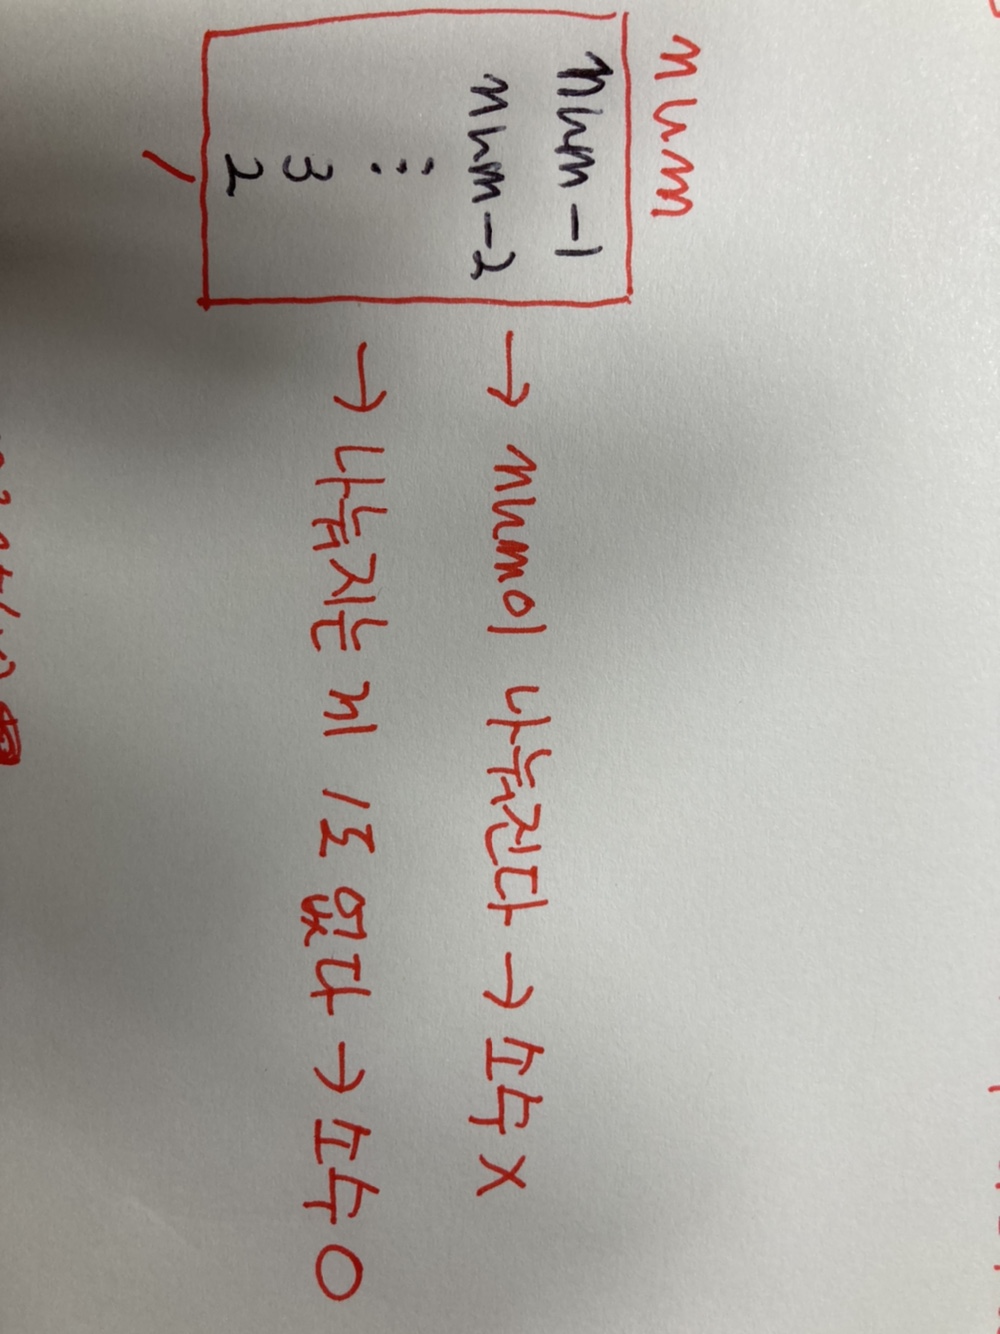 num
num-1
num-2 → num이 나눠진다 → 소수 X
⋮ → 나눠지는 게 1도 없다 → 소수 O
3
2
1